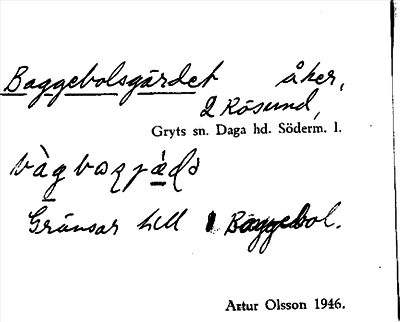 Baggebolsgärdet åker,
2 Rösund,
Gryts sn. Daga hd. Söderm. l.
Gränsar till Baggebol.
Artur Olsson 1946.